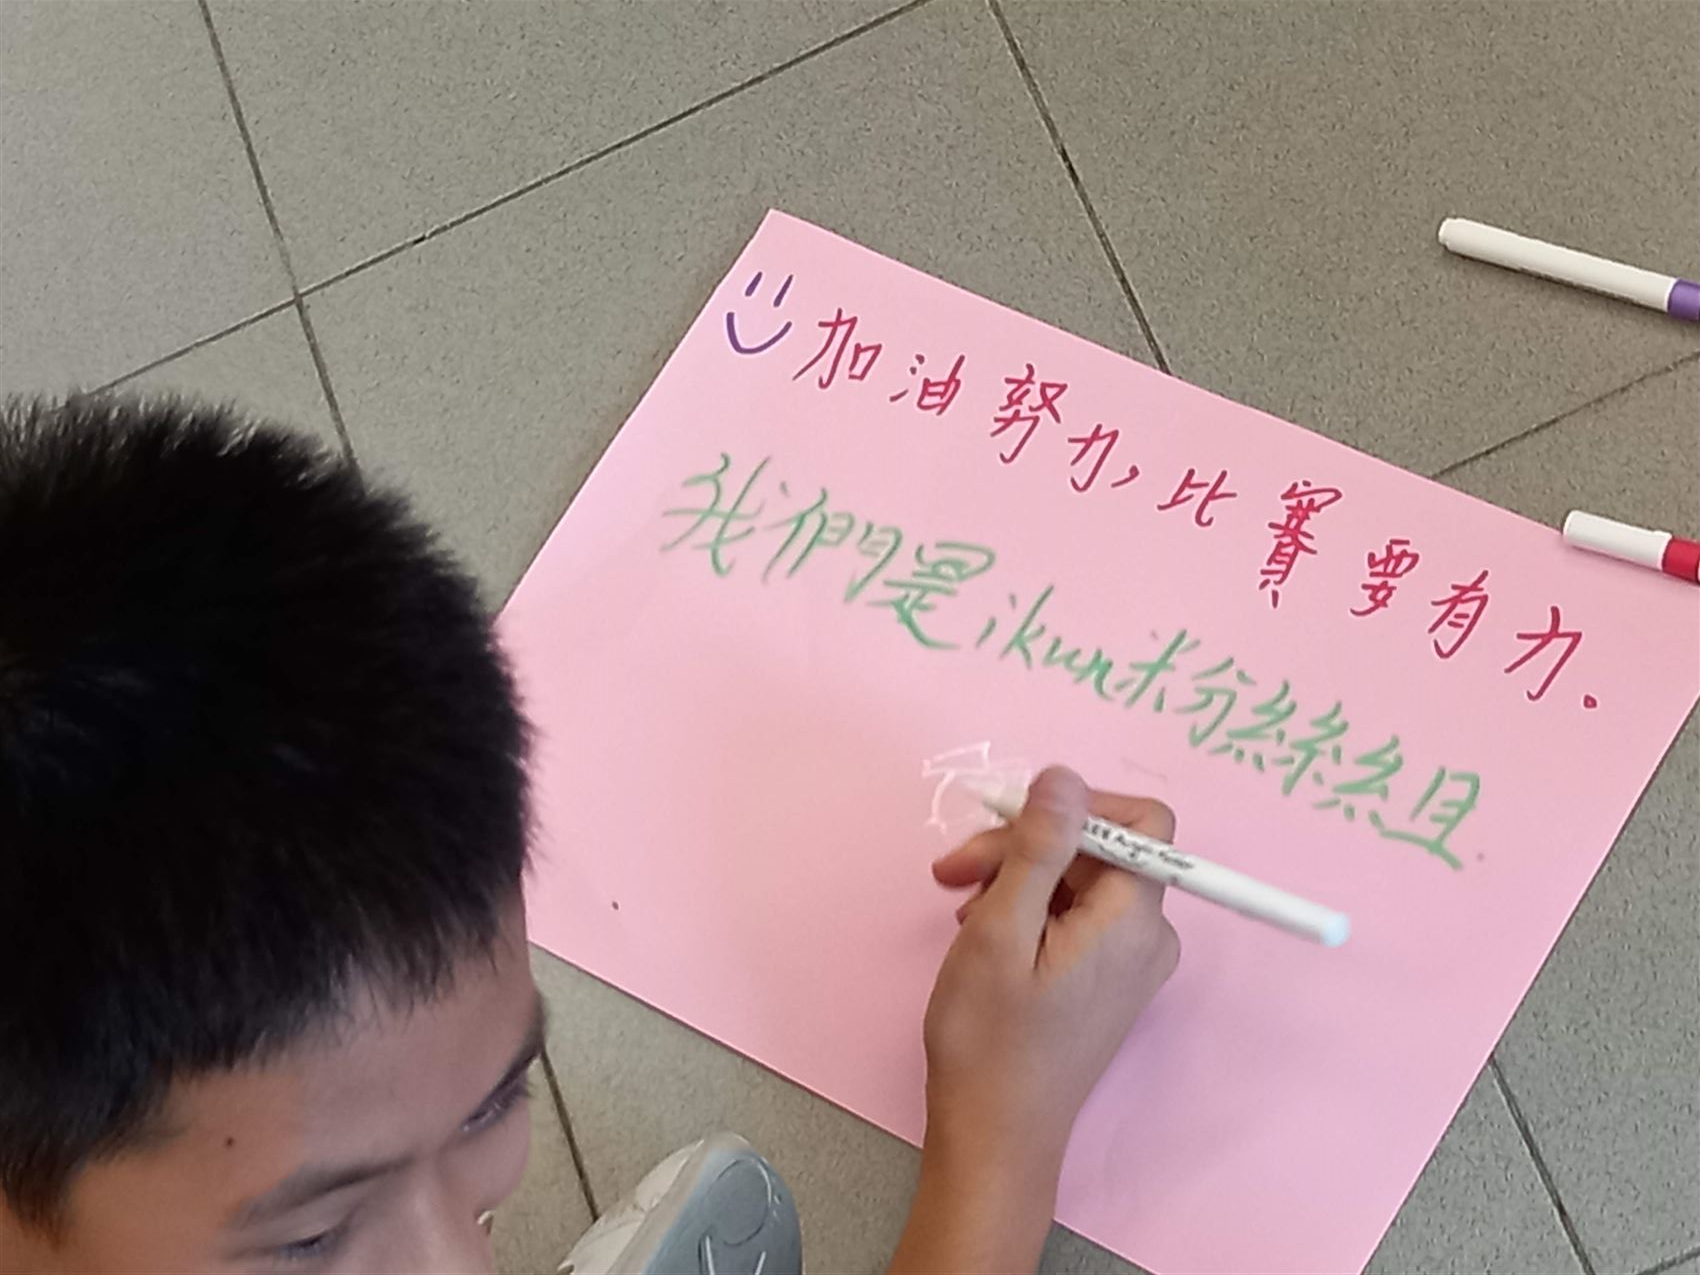 加油努力，比賽要有力。
我們是ikun粉絲組